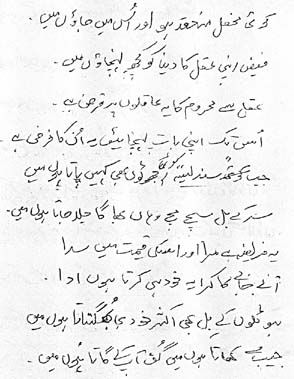 کوئی محفل منعقد ہو اور اُس میں جاؤں میں۔
فیض اپنی عقل کا دنیا کو کچھ پہنچاؤں میں۔
عقل سے محروم کا یہ عاقلوں پر قرض ہے۔
اُس تک اپنی بات پہنچانا یہ اُن کا فرض ہے
جب کوئی بھی کہیں پاتا ہوں میں
سر کے بل سچ مچ وہاں بھاگا چلا جاتا ہوں میں۔
یہ فرائض ہے مرا اور اسکی قیمت میں سدا
آنے جانے کا کرایہ خود ہی کرتا ہوں ادا۔
ہوٹلوں کے بل بھی اکثر خود ہی بھگتاتا ہوں میں
جیب سے کھاتا ہوں میں گُن آپ کے گاتا ہوں میں۔